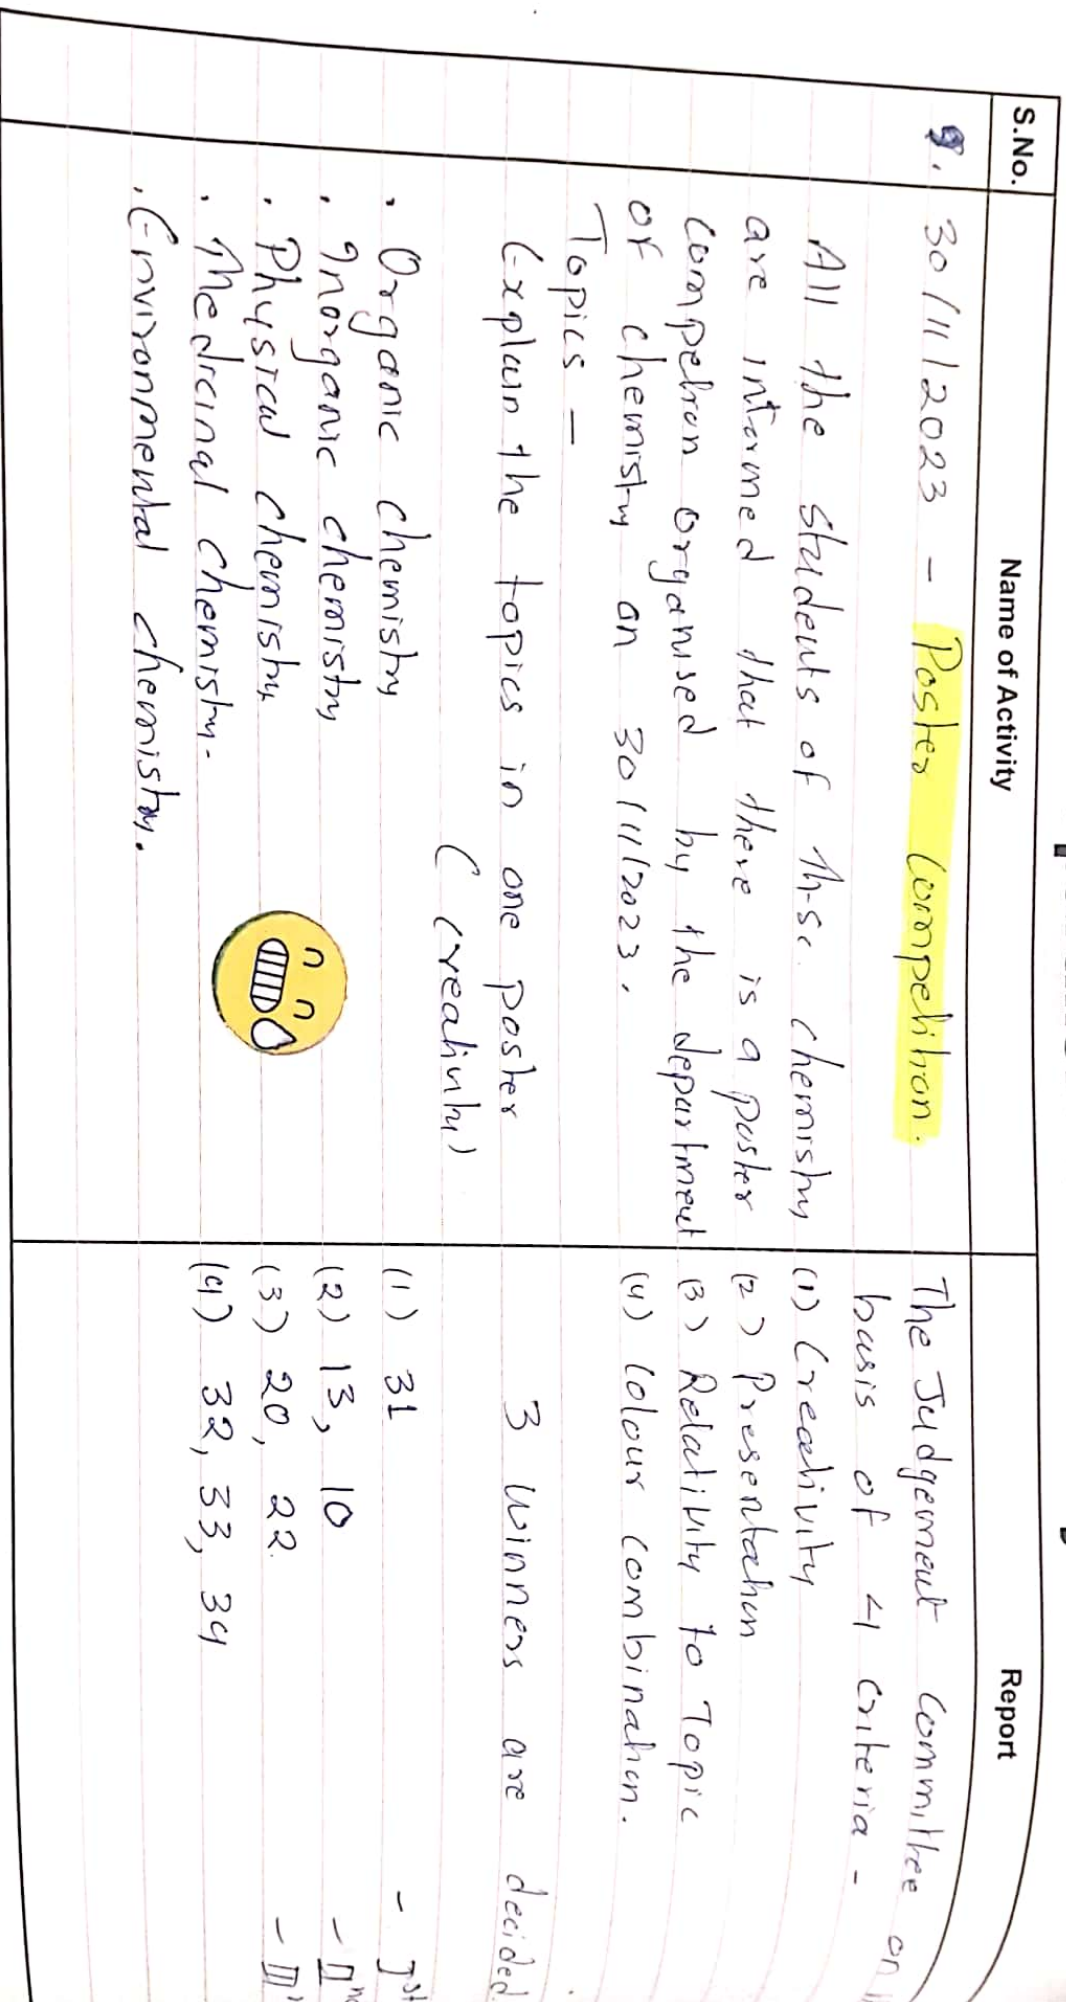 S.No.
Name of Activity
Report
9. 30/11/2023 - Poster Competition.
All the students of M.sc. chemistry
are informed that there is a poster
competion organised by the department
of chemistry on 30/11/2023.
Topics -
Explain the topics in one poster
(Creativity)
• Organic chemistry
• Inorganic chemistry
• Physical chemistry
• Medicinal chemistry.
• Environmental chemistry.
The Judgement Committee on
basis of 4 criteria -
(1) Creativity
(2) Presentation
(3) Relativity to Topic
(4) Colour combination.
3 winners are decided
(1) 31 - Ist
(2) 13, 10 - IInd
(3) 20, 22. - III
(4) 32, 33, 34